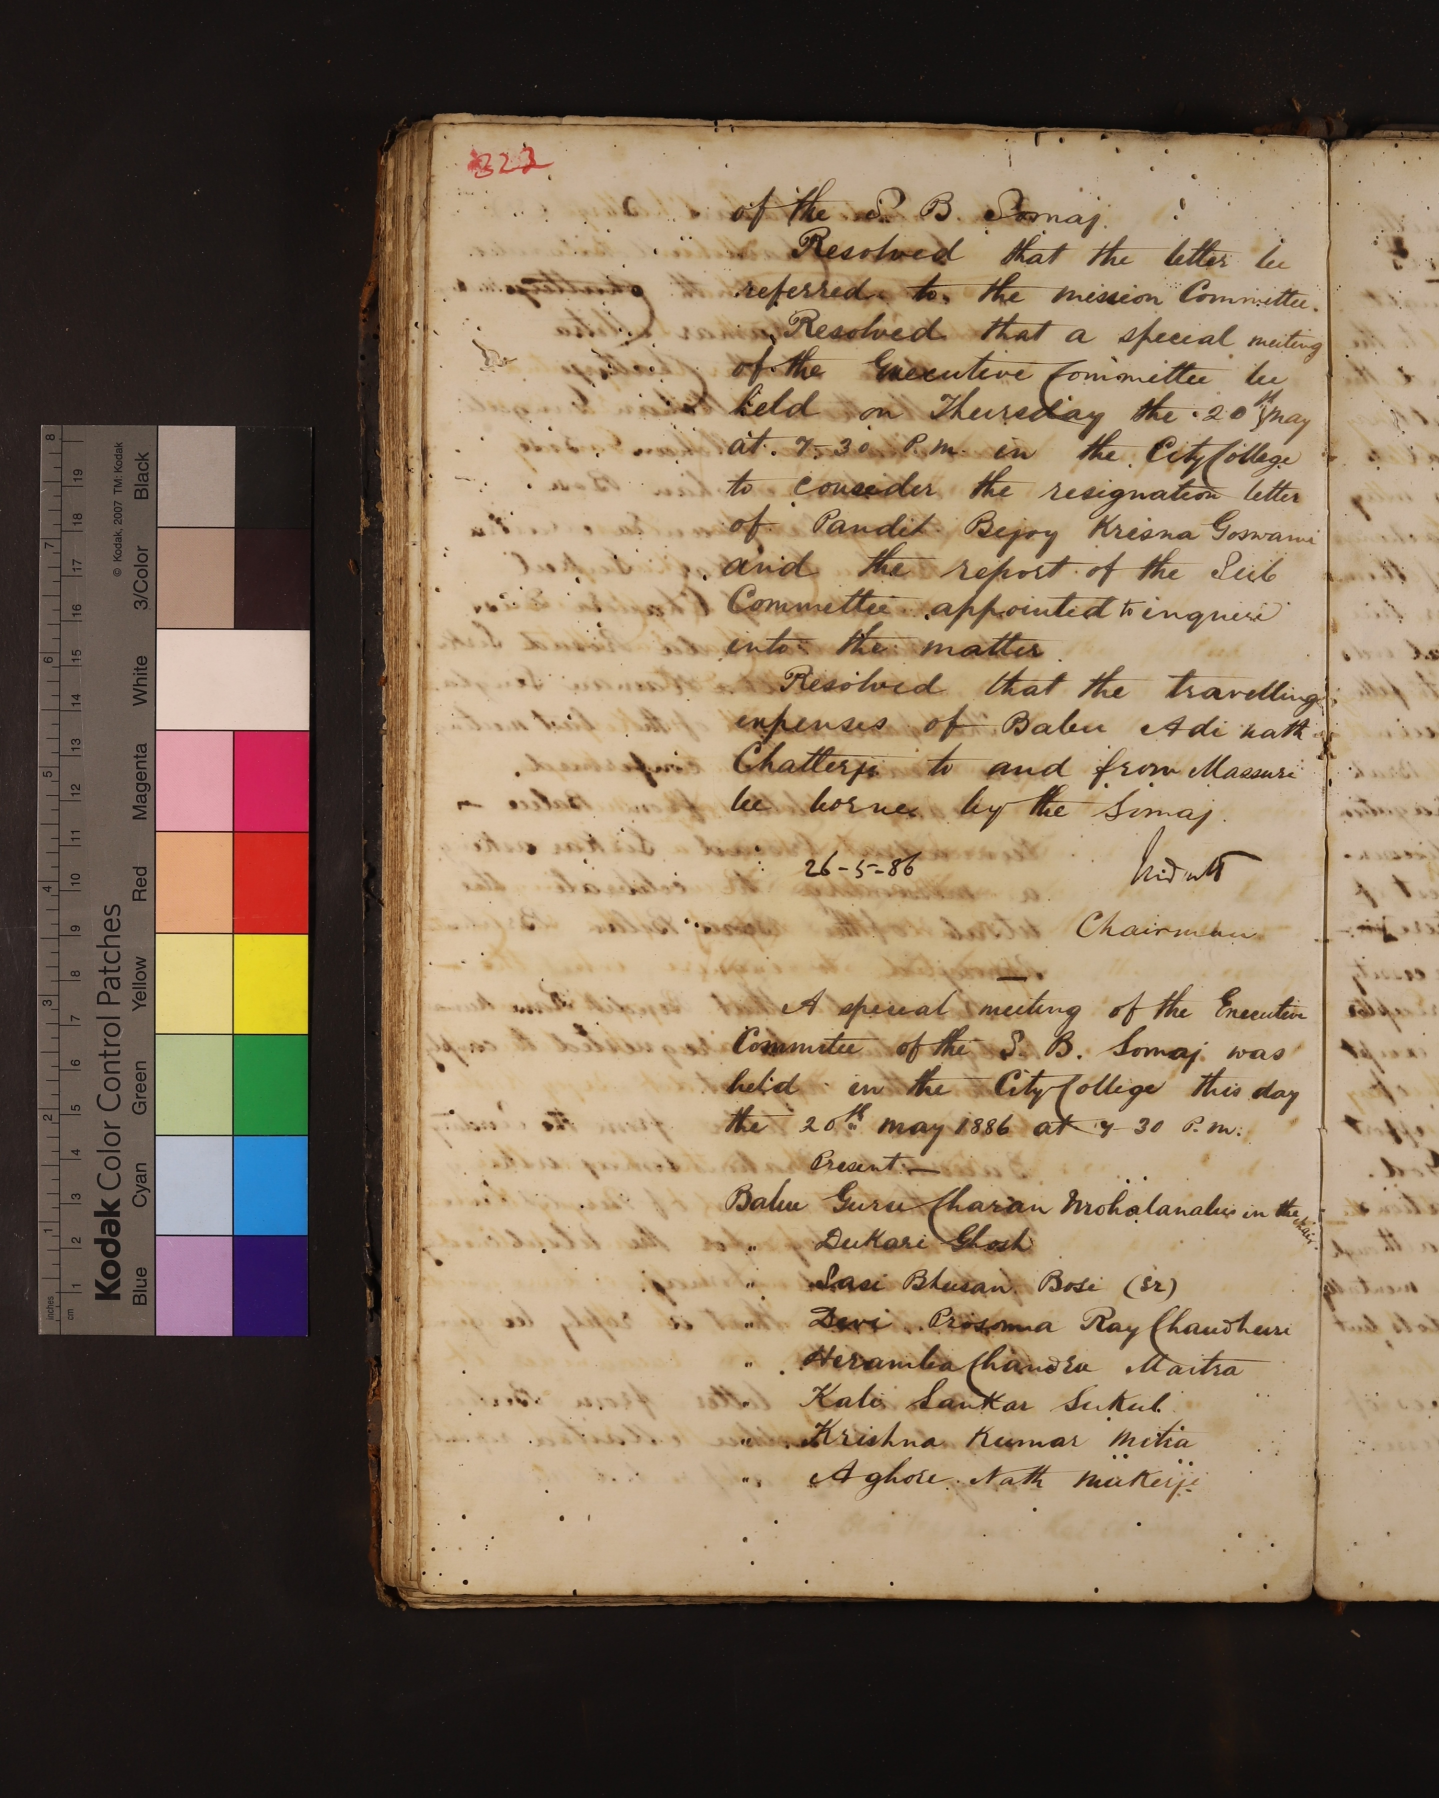 © Kodak, 2007 TM: Kodak
Kodak Color Control Patches
Blue Cyan Green Yellow Red Magenta White 3/Color Black
inches 1 2 3 4 5 6 7 8
cm 1 2 3 4 5 6 7 8 9 10 11 12 13 14 15 16 17 18 19
322
of the S. B. Somaj.
Resolved that the letter be
referred to the mission Committee.
Resolved that a special meeting
of the Executive Committee be
held on Thursday the 20th May
at 7-30 P.m. in the City College
to consider the resignation letter
of Pandit Bejoy Krisna Goswami
and the report of the Sub
Committee appointed to inquire
into the matter.
Resolved that the travelling
expenses of Babu Adi nath
Chatterji to and from Massuri
be borne by the Somaj.
26-5-86
Chairman
A special meeting of the Executive
Committee of the S. B. Somaj was
held in the City College this day
the 20th may 1886 at 7 30 P.m.
Present:—
Babu Guru Charan Mohalanabis in the chair.
" Dukari Ghosh
" Sasi Bhusan Bose (Sr)
" Devi Prosonna Ray Chaudhuri
" Heramba Chandra Maitra
" Kali Sankar Sukul
" Krishna Kumar Mitra
" Aghore Nath Mukerji